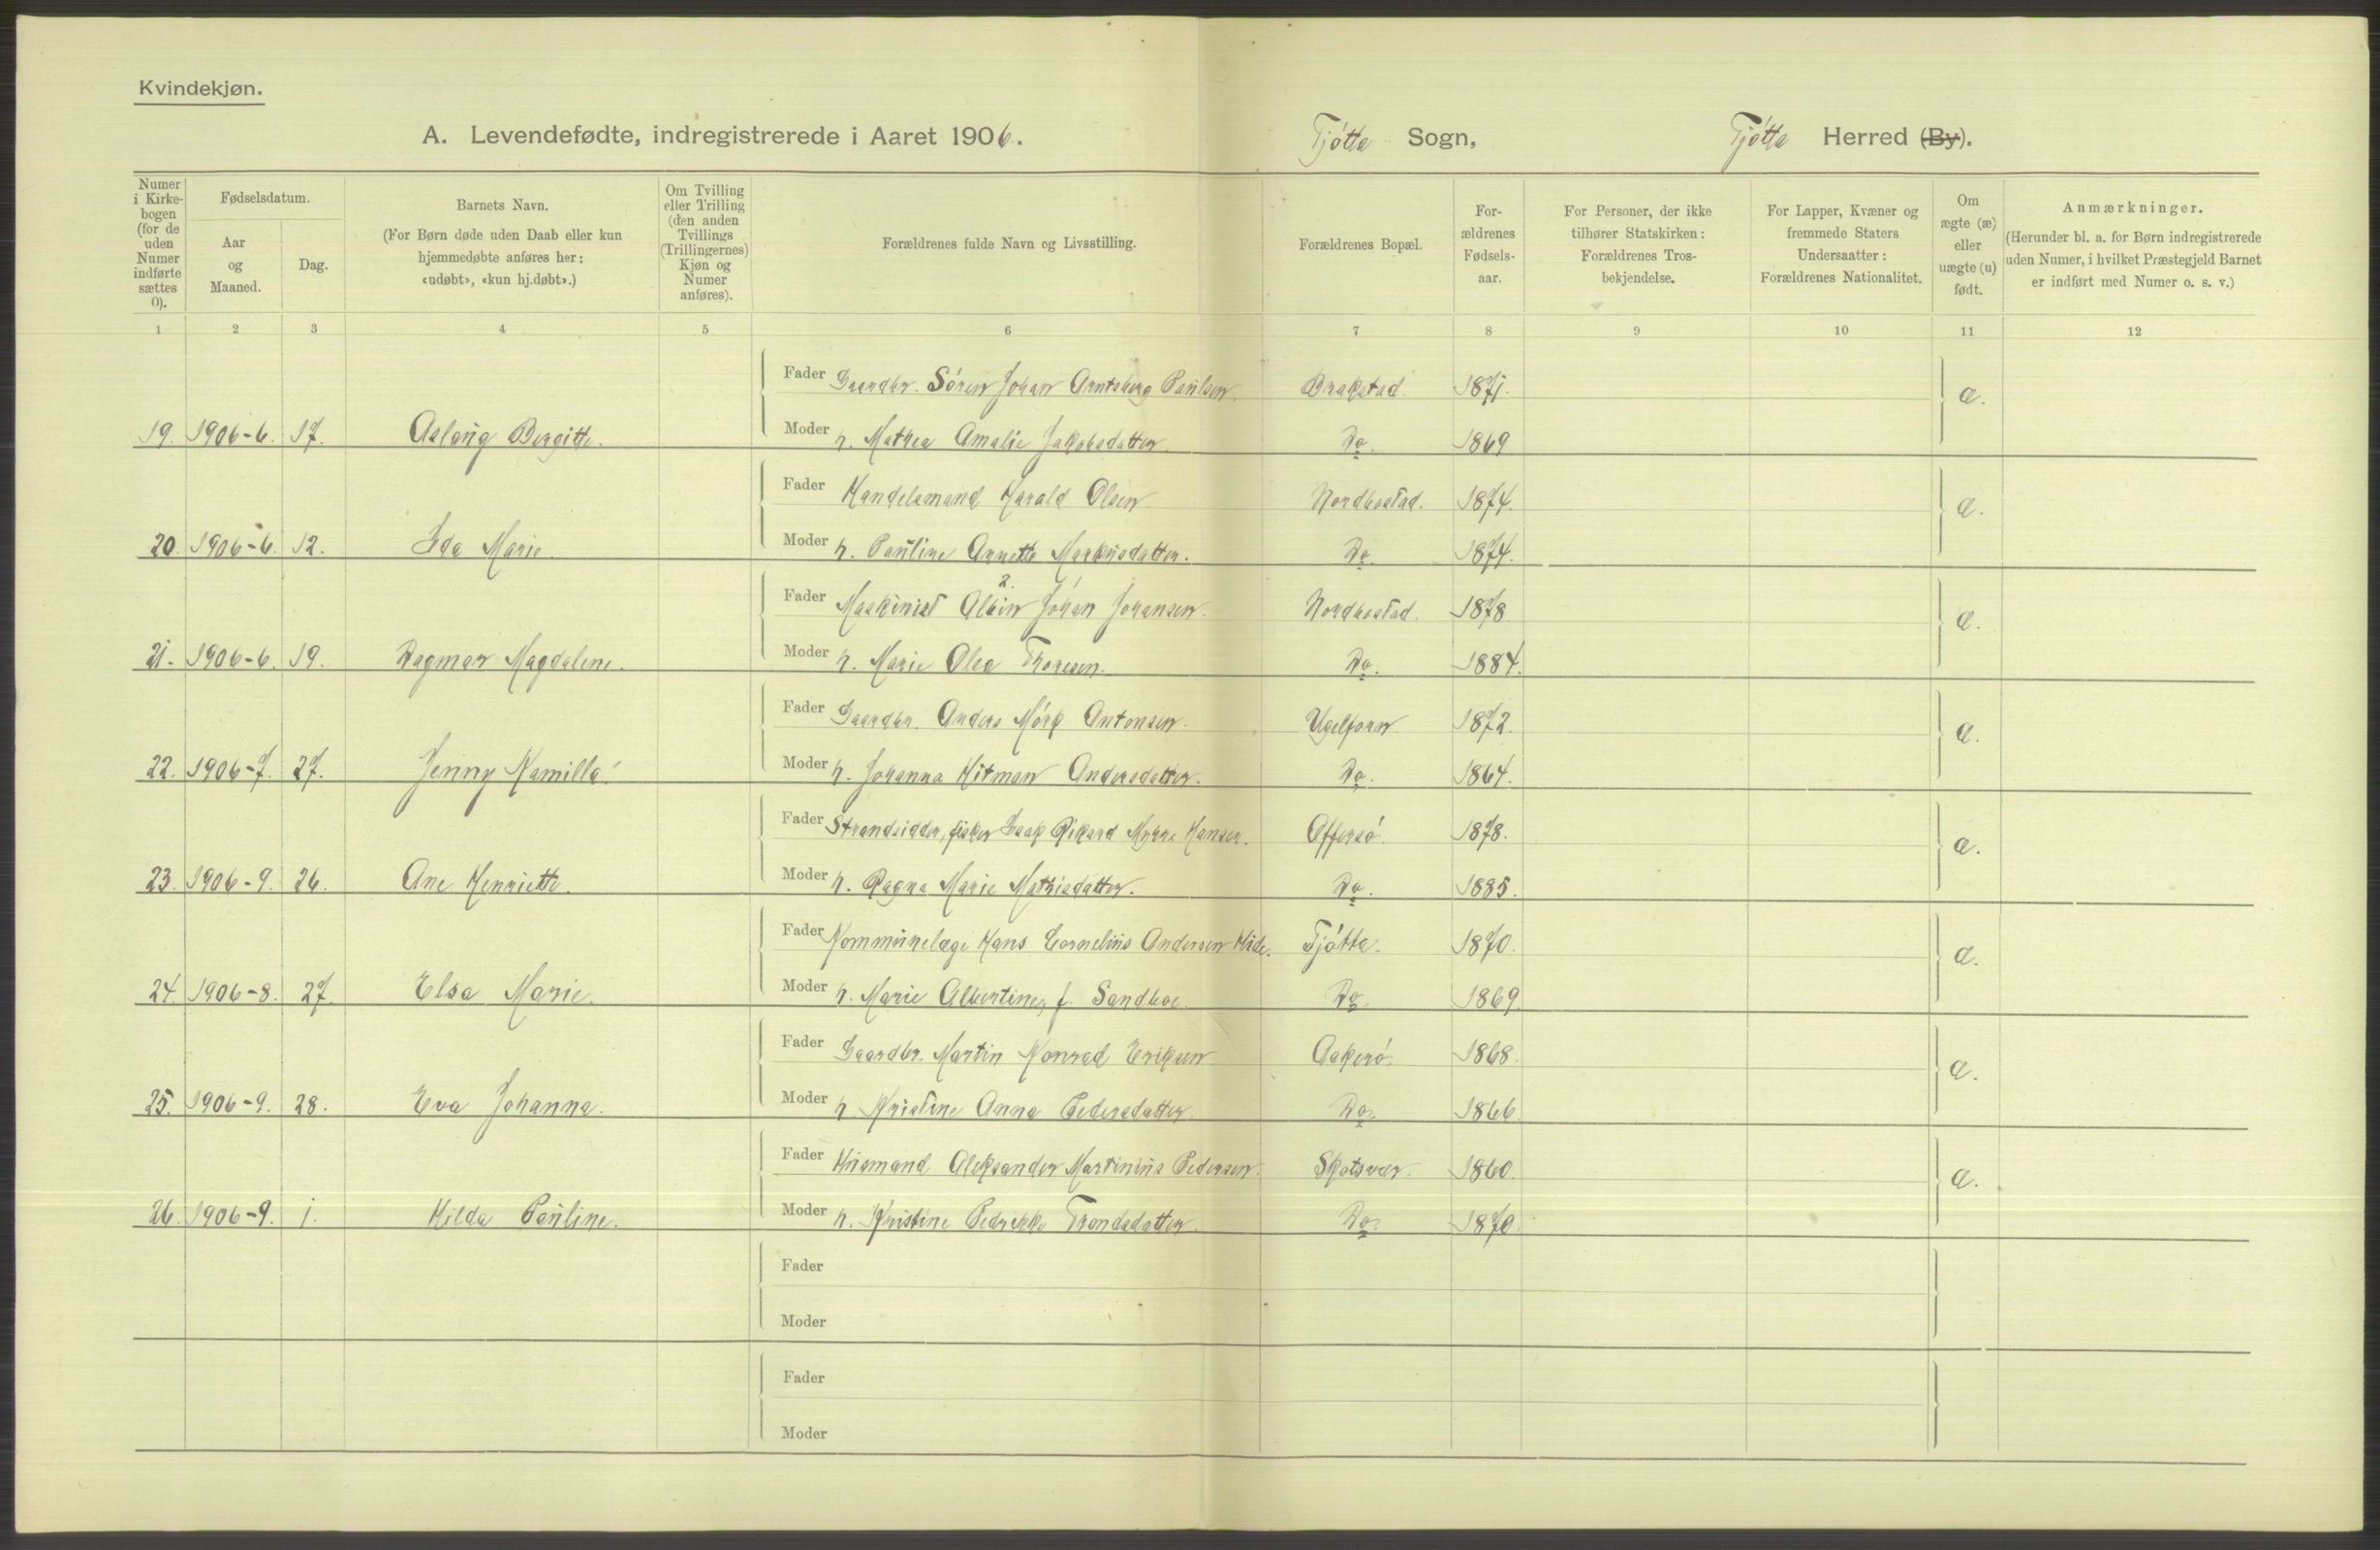 Kvindekjøn.
A. Levendefødte, indregistrerede i Aaret 1906.
Tjøtta Sogn,
Tjøtta Herred (By).
Numer i Kirkebogen (for de uden Numer indførte sættes 0).
Fødselsdatum.
Aar og Maaned.
Dag.
Barnets Navn.
(For Børn døde uden Daab eller kun hjemmedøbte anføres her: «udøbt», «kun hj.døbt».)
Om Tvilling eller Trilling (den anden Tvillings (Trillingernes) Kjøn og Numer anføres).
Forældrenes fulde Navn og Livsstilling.
Forældrenes Bopæl.
For-ældrenes Fødsels-aar.
For Personer, der ikke tilhører Statskirken: Forældrenes Tros-bekjendelse.
For Lapper, Kvæner og fremmede Staters Undersaatter: Forældrenes Nationalitet.
Om ægte (æ) eller uægte (u) født.
Anmærkninger.
(Herunder bl. a. for Børn indregistrerede uden Numer, i hvilket Præstegjeld Barnet er indført med Numer o. s. v.)
1 2 3 4 5 6 7 8 9 10 11 12
Fader Gaardbr. Søren Johan Arntsberg Paulsen. Brakstad. 1871. æ.
19. 1906-6. 17. Aslaug Bergitte. Moder h. Mathea Amalie Jakobsdatter. Do. 1869
Fader Handelsmand Harald Olsen Nordbostad. 1874. æ.
20. 1906-6. 12. Ida Marie. Moder h. Pauline Annette Markusdatter. Do 1874.
Fader Maskinist Albin Johan Johansen. Nordbostad. 1878 æ.
21. 1906-6. 19. Dagmar Magdalene. Moder h. Marie Olea Thoresen. Do. 1884.
Fader Gaardbr. Anders Mørk Antonsen. Ugelforn 1872. æ.
22. 1906-7. 27. Jenny Kamilla. Moder h. Johanna Hitman Andersdatter. Do. 1864.
Fader Strandsidder, fisker Isak Rikard Myhre Hansen. Offersø 1878. æ.
23. 1906-9. 26. Ane Henriette. Moder h. Ragna Marie Mathisdatter. Do. 1885.
Fader Kommunelæge Hans Cornelius Andersen Hide. Tjøtta. 1870. æ.
24. 1906-8. 27. Elsa Marie. Moder h. Marie Albertine, f. Sandboe. Do. 1869.
Fader Gaardbr. Martin Konrad Eriksen Aakerø. 1868. æ.
25. 1906-9. 28. Eva Johanna. Moder h. Kristine Anna Pedersdatter. Do. 1866.
Fader Husmand Aleksander Martinius Pedersen. Skotsvær. 1860. æ.
26. 1906-9. 1. Hilda Pauline. Moder h. Kristine Pedrikke Trondsdatter. Do. 1870.
Fader
Moder
Fader
Moder